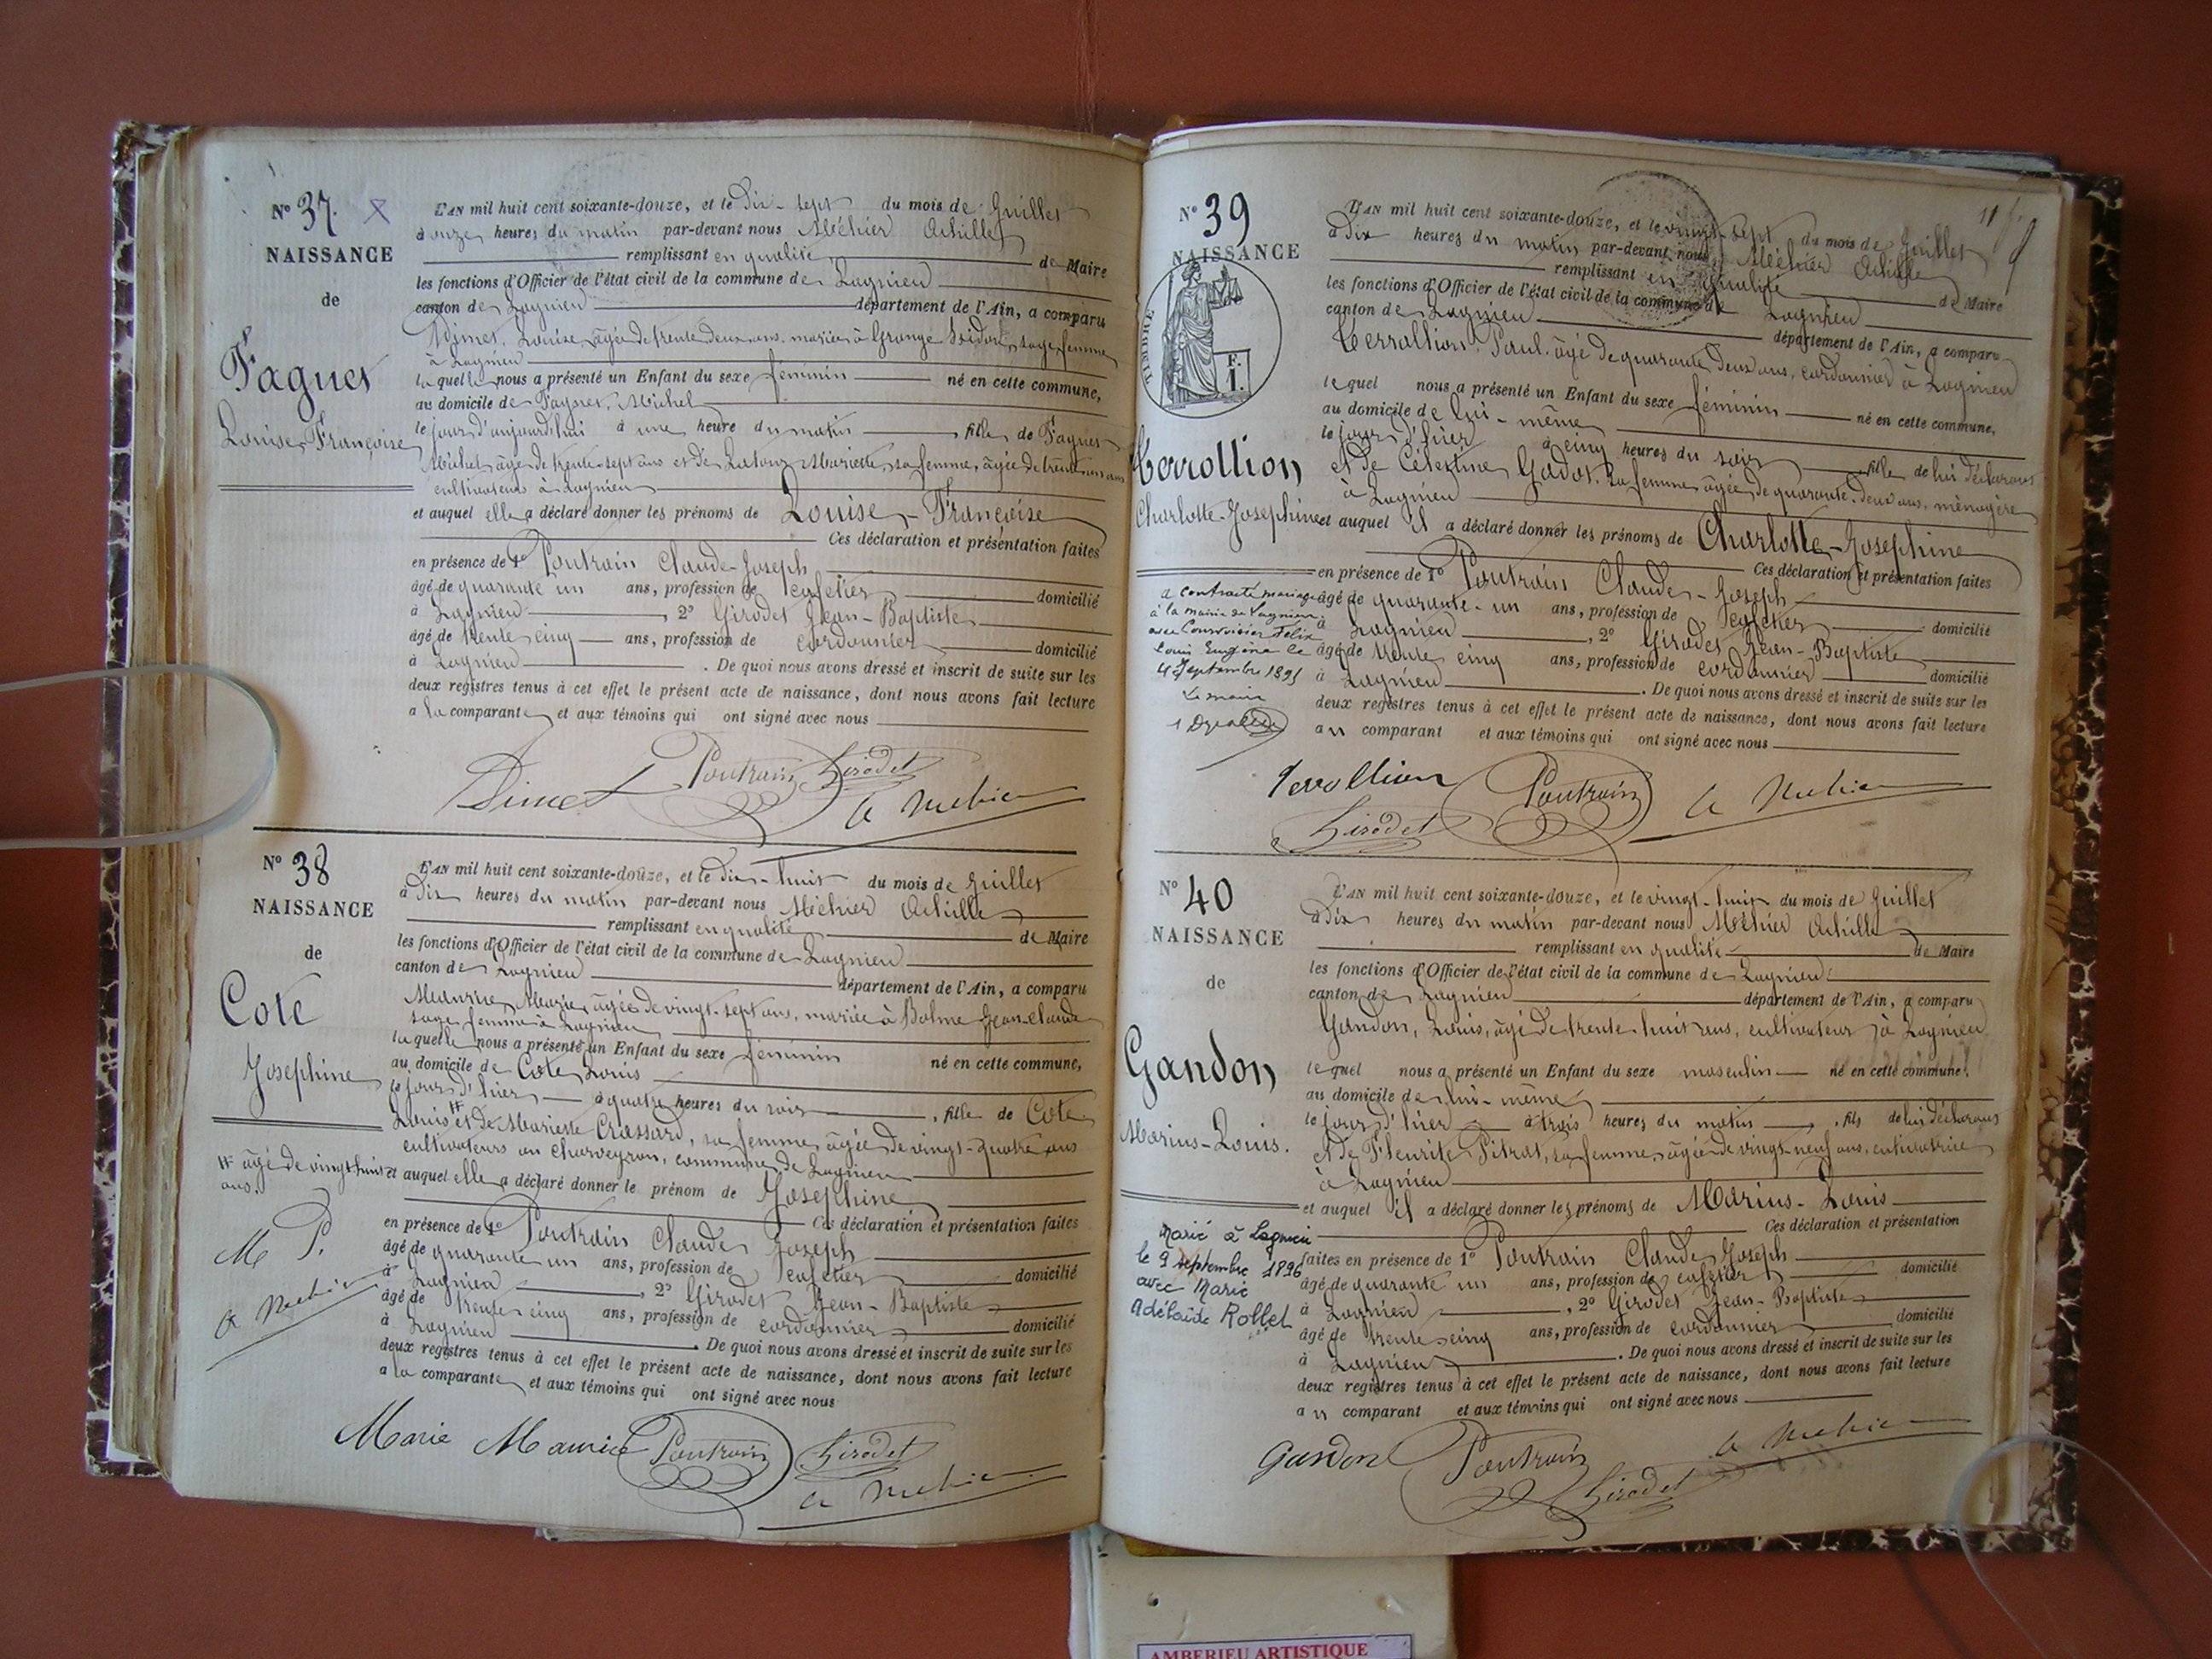 N° 37.
NAISSANCE
de
Fagnet
Louise Françoise
L'AN mil huit cent soixante-douze, et le dix-sept du mois de Juillet
à onze heures du matin par-devant nous Méhier Achille
remplissant en qualité de Maire
les fonctions d'Officier de l'état civil de la commune de Lagnieu
canton de Lagnieu département de l'Ain, a comparu
Dimet, Louise, âgée de trente deux ans, mariée à Grange Isidore, sage femme
à Lagnieu
laquelle nous a présenté un Enfant du sexe féminin né en cette commune,
au domicile de Fagnet, Michel
le jour d'aujourd'hui à une heure du matin, fille de Fagnet
Michel, âgé de trente-sept ans et de Mariette, sa femme, âgée de trente ans
cultivateurs à Lagnieu
et auquel elle a déclaré donner les prénoms de Louise-Françoise
Ces déclaration et présentation faites
en présence de 1° Poutrain Claude-Joseph
âgé de quarante un ans, profession de cafetier domicilié
à Lagnieu, 2° Girodet Jean-Baptiste
âgé de trente cinq ans, profession de cordonnier domicilié
à Lagnieu. De quoi nous avons dressé et inscrit de suite sur les
deux registres tenus à cet effet le présent acte de naissance, dont nous avons fait lecture
a la comparante et aux témoins qui ont signé avec nous
Dimet Poutrain Girodet
A Mehier
N° 38
NAISSANCE
de
Cote
Josephine
L'AN mil huit cent soixante-douze, et le dix-huit du mois de Juillet
à dix heures du matin par-devant nous Méhier Achille
remplissant en qualité de Maire
les fonctions d'Officier de l'état civil de la commune de Lagnieu
canton de Lagnieu département de l'Ain, a comparu
Maurice, Marie, âgée de vingt-sept ans, mariée à Bolme Jean-Claude
sage femme à Lagnieu
laquelle nous a présenté un Enfant du sexe féminin né en cette commune,
au domicile de Cote, Louis
le jour d'hier à quatre heures du soir, fille de Cote
Louis et de Mariette Crassard, sa femme, âgée de vingt-quatre ans
cultivateurs au Charveyron, commune de Lagnieu
âgé de vingt huit ans.
et auquel elle a déclaré donner le prénom de Josephine
Ces déclaration et présentation faites
M P.
A Mehier
en présence de 1° Poutrain Claude Joseph
âgé de quarante un ans, profession de cafetier domicilié
à Lagnieu, 2° Girodet Jean-Baptiste
âgé de trente cinq ans, profession de cordonnier domicilié
à Lagnieu. De quoi nous avons dressé et inscrit de suite sur les
deux registres tenus à cet effet le présent acte de naissance, dont nous avons fait lecture
a la comparante et aux témoins qui ont signé avec nous
Marie Maurice Poutrain Girodet
A Mehier
N° 39
NAISSANCE
TIMBRE
F.
1.
Verrollion
Charlotte-Josephine
L'AN mil huit cent soixante-douze, et le vingt-sept du mois de Juillet
à dix heures du matin par-devant nous Méhier Achille
remplissant en qualité de Maire
les fonctions d'Officier de l'état civil de la commune de Lagnieu
canton de Lagnieu département de l'Ain, a comparu
Verrollion, Paul, âgé de quarante deux ans, cordonnier à Lagnieu
lequel nous a présenté un Enfant du sexe féminin né en cette commune,
au domicile de lui-même
le jour d'hier à cinq heures du soir fille de lui déclarant
et de Célestine Godot, sa femme, âgée de quarante-deux ans, ménagère
à Lagnieu
et auquel il a déclaré donner les prénoms de Charlotte-Josephine
Ces déclaration et présentation faites
a contracté mariage
à la mairie de Lagnieu
avec Courvoisier Félix
Louis Eugène le
4 Septembre 1895
Le maire
en présence de 1° Poutrain Claude-Joseph
âgé de quarante-un ans, profession de cafetier domicilié
à Lagnieu, 2° Girodet Jean-Baptiste
âgé de trente cinq ans, profession de cordonnier domicilié
à Lagnieu. De quoi nous avons dressé et inscrit de suite sur les
deux registres tenus à cet effet le présent acte de naissance, dont nous avons fait lecture
au comparant et aux témoins qui ont signé avec nous
Verollion Poutrain A Mehier
Girodet
N° 40
NAISSANCE
de
Gandon
Marius-Louis.
L'AN mil huit cent soixante-douze, et le vingt-huit du mois de Juillet
à dix heures du matin par-devant nous Méhier Achille
remplissant en qualité de Maire
les fonctions d'Officier de l'état civil de la commune de Lagnieu
canton de Lagnieu département de l'Ain, a comparu
Gandon, Louis, âgé de trente-huit ans, cultivateur à Lagnieu
lequel nous a présenté un Enfant du sexe masculin né en cette commune,
au domicile de lui-même
le jour d'hier à trois heures du matin, fils de lui déclarant
et de Fleurite Pitrat, sa femme, âgée de vingt-neuf ans, cultivatrice
à Lagnieu
et auquel il a déclaré donner les prénoms de Marius-Louis
Ces déclaration et présentation
Marié à Lagnieu
le 9 septembre 1896
avec Marie
Adélaïde Rollet
faites en présence de 1° Poutrain Claude Joseph
âgé de quarante un ans, profession de cafetier domicilié
à Lagnieu, 2° Girodet Jean-Baptiste
âgé de trente cinq ans, profession de cordonnier domicilié
à Lagnieu. De quoi nous avons dressé et inscrit de suite sur les
deux registres tenus à cet effet le présent acte de naissance, dont nous avons fait lecture
au comparant et aux témoins qui ont signé avec nous
Gandon Poutrain Girodet A Mehier
AMBERIEU ARTISTIQUE